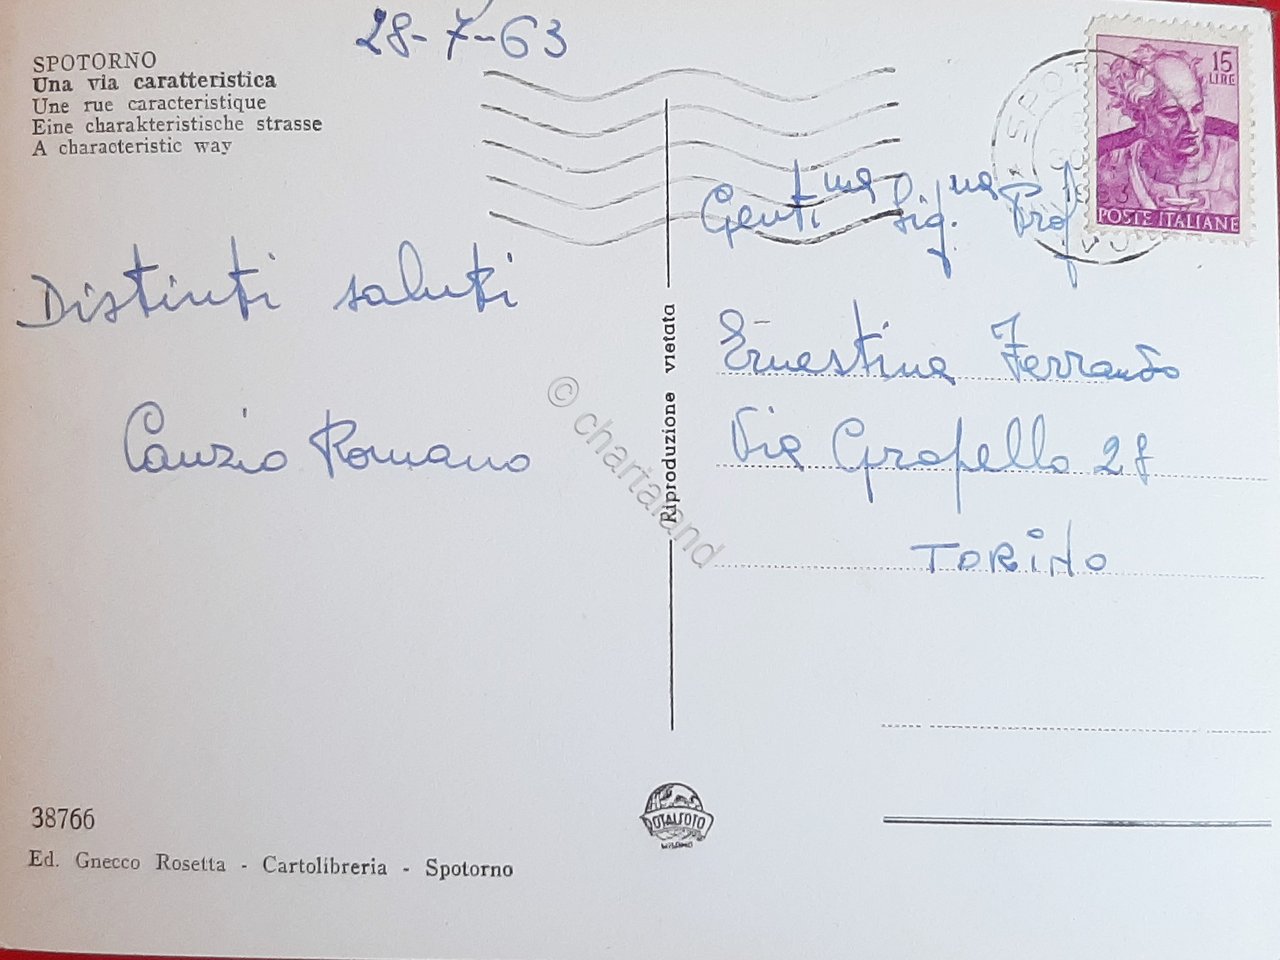 28-7-63
SPOTORNO
Una via caratteristica
Une rue caracteristique
Eine charakteristische strasse
A characteristic way
Distinti saluti
Canzio Romano
38766
Ed. Gnecco Rosetta - Cartolibreria - Spotorno
Riproduzione vietata
© chartaland
TOTALFOTO
MILANO
15
LIRE
POSTE ITALIANE
Genti.ma Sig.na Prof
Ernestina Ferrando
Via Grapello 28
TORINO